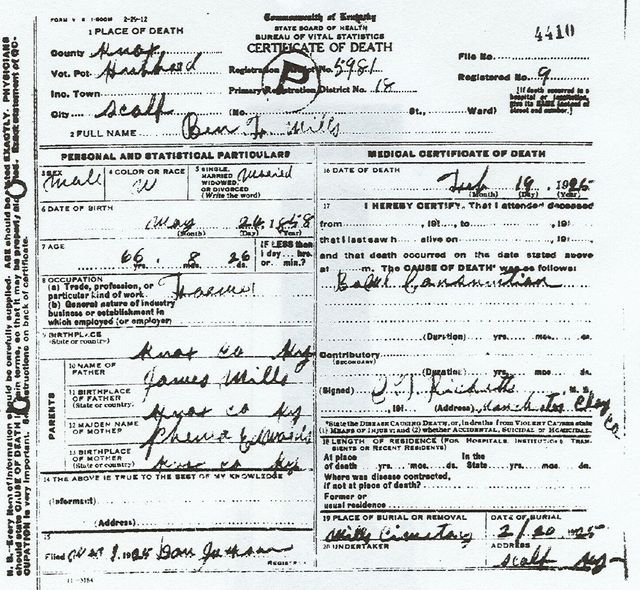 FORM V S 1-500M 2-25-12
Commonwealth of Kentucky
STATE BOARD OF HEALTH
BUREAU OF VITAL STATISTICS
CERTIFICATE OF DEATH
4410
1 PLACE OF DEATH
County Knox
Vot. Pct. Hubbard
Inc. Town
City Scalf
Registration District No. 5981
Primary Registration District No. 18
(No. St., Ward)
File No.
Registered No. 9
[If death occurred in a
hospital or institution,
give its NAME instead of
street and number.]
2 FULL NAME Ben F. Mills
PERSONAL AND STATISTICAL PARTICULARS
3 SEX
Male
4 COLOR OR RACE
W
5 SINGLE,
MARRIED
WIDOWED,
OR DIVORCED
(Write the word)
Married
6 DATE OF BIRTH
May 24 1858
(Month) (Day) (Year)
7 AGE
66 yrs. 8 ms. 26 ds.
IF LESS than
1 day ... hrs.
or ... min.?
8 OCCUPATION
(a) Trade, profession, or
particular kind of work
Farmer
(b) General nature of industry
business or establishment in
which employed (or employer)
9 BIRTHPLACE
(State or country)
Knox Co Ky
PARENTS
10 NAME OF
FATHER
James Mills
11 BIRTHPLACE
OF FATHER
(State or country)
Knox Co Ky
12 MAIDEN NAME
OF MOTHER
13 BIRTHPLACE
OF MOTHER
(State or country)
Knox Co Ky
14 THE ABOVE IS TRUE TO THE BEST OF MY KNOWLEDGE
(Informant)
(Address)
15
Filed 1925 Dan Jackson
REGISTRAR
11-3184
MEDICAL CERTIFICATE OF DEATH
16 DATE OF DEATH
Feb 19, 1925
(Month) (Day) (Year)
17 I HEREBY CERTIFY, That I attended deceased
from , 191 , to , 191 ,
that I last saw h alive on , 191 ,
and that death occurred on the date stated above
at m. The CAUSE OF DEATH* was as follows:
(Duration) yrs. mos. ds.
Contributory
(SECONDARY)
(Duration) yrs. mos. ds.
(Signed) M. D.
, 191 (Address) Manchester Clay Co
*State the DISEASE CAUSING DEATH, or, in deaths from VIOLENT CAUSES state
(1) MEANS OF INJURY; and (2) whether ACCIDENTAL, SUICIDAL or HOMICIDAL.
18 LENGTH OF RESIDENCE (FOR HOSPITALS, INSTITUTIONS, TRANSIENTS OR RECENT RESIDENTS)
At place of death yrs. mos. ds. In the State yrs. mos. ds.
Where was disease contracted,
if not at place of death?
Former or
usual residence
19 PLACE OF BURIAL OR REMOVAL
Mills Cemetary
DATE OF BURIAL
2/20 1925
20 UNDERTAKER
ADDRESS
Scalf Ky
N. B.—Every item of information should be carefully supplied. AGE should be stated EXACTLY. PHYSICIANS
should state CAUSE OF DEATH in plain terms, so that it may be properly classified. Exact statement of OC-
CUPATION is very important. See instructions on back of certificate.